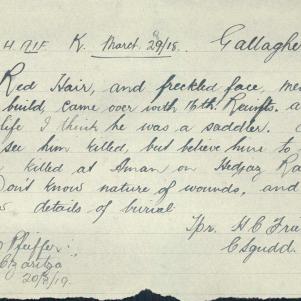 K. March 29/18. Gallagher
Red Hair, and freckled face, me
build, came over with 16th Reinfts. a
life I think he was a saddler.
see him killed, but believe him to
killed at Aman on Hedjaz Ra
Don't know nature of wounds, and
details of burial
Tpr. H C Fra
Pfeiffer.
20/2/19.